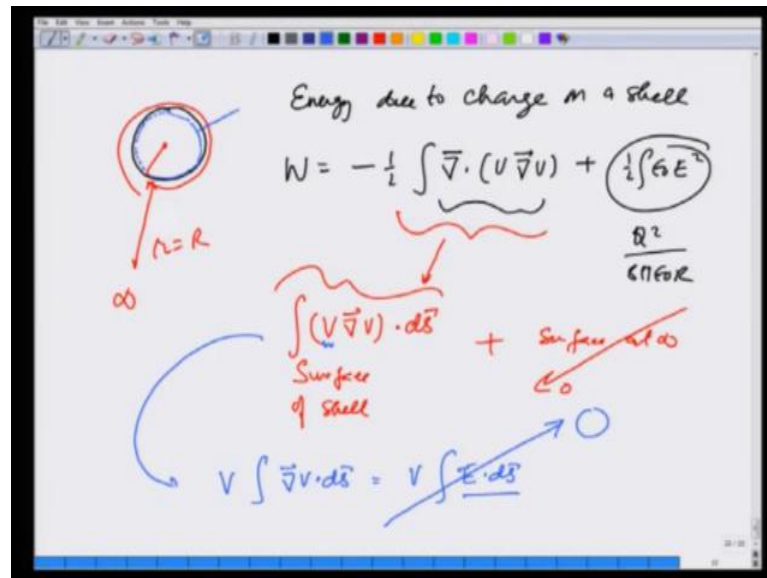 File Edit View Insert Actions Tools Help
Energy due to change on a shell
W = - 1/2 ∫ ∇⃗ · (V ∇⃗ V) + 1/2 ∫ ε0 E²
Q²
8πε0R
r = R
∞
∫ (V ∇⃗ V) · ds⃗ + Surface at ∞
Surface
of shell
0
V ∫ ∇⃗ V · ds⃗ = V ∫ E⃗ · ds⃗ 0